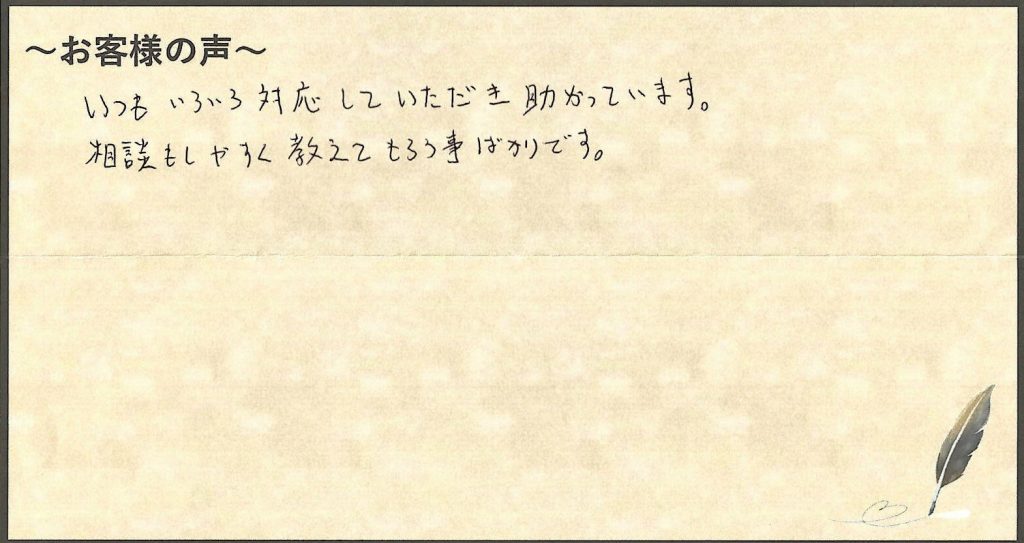 ～お客様の声～
いつも いろいろ 対応 していただき 助かっています。
相談もしやすく 教えてもろう事ばかりです。